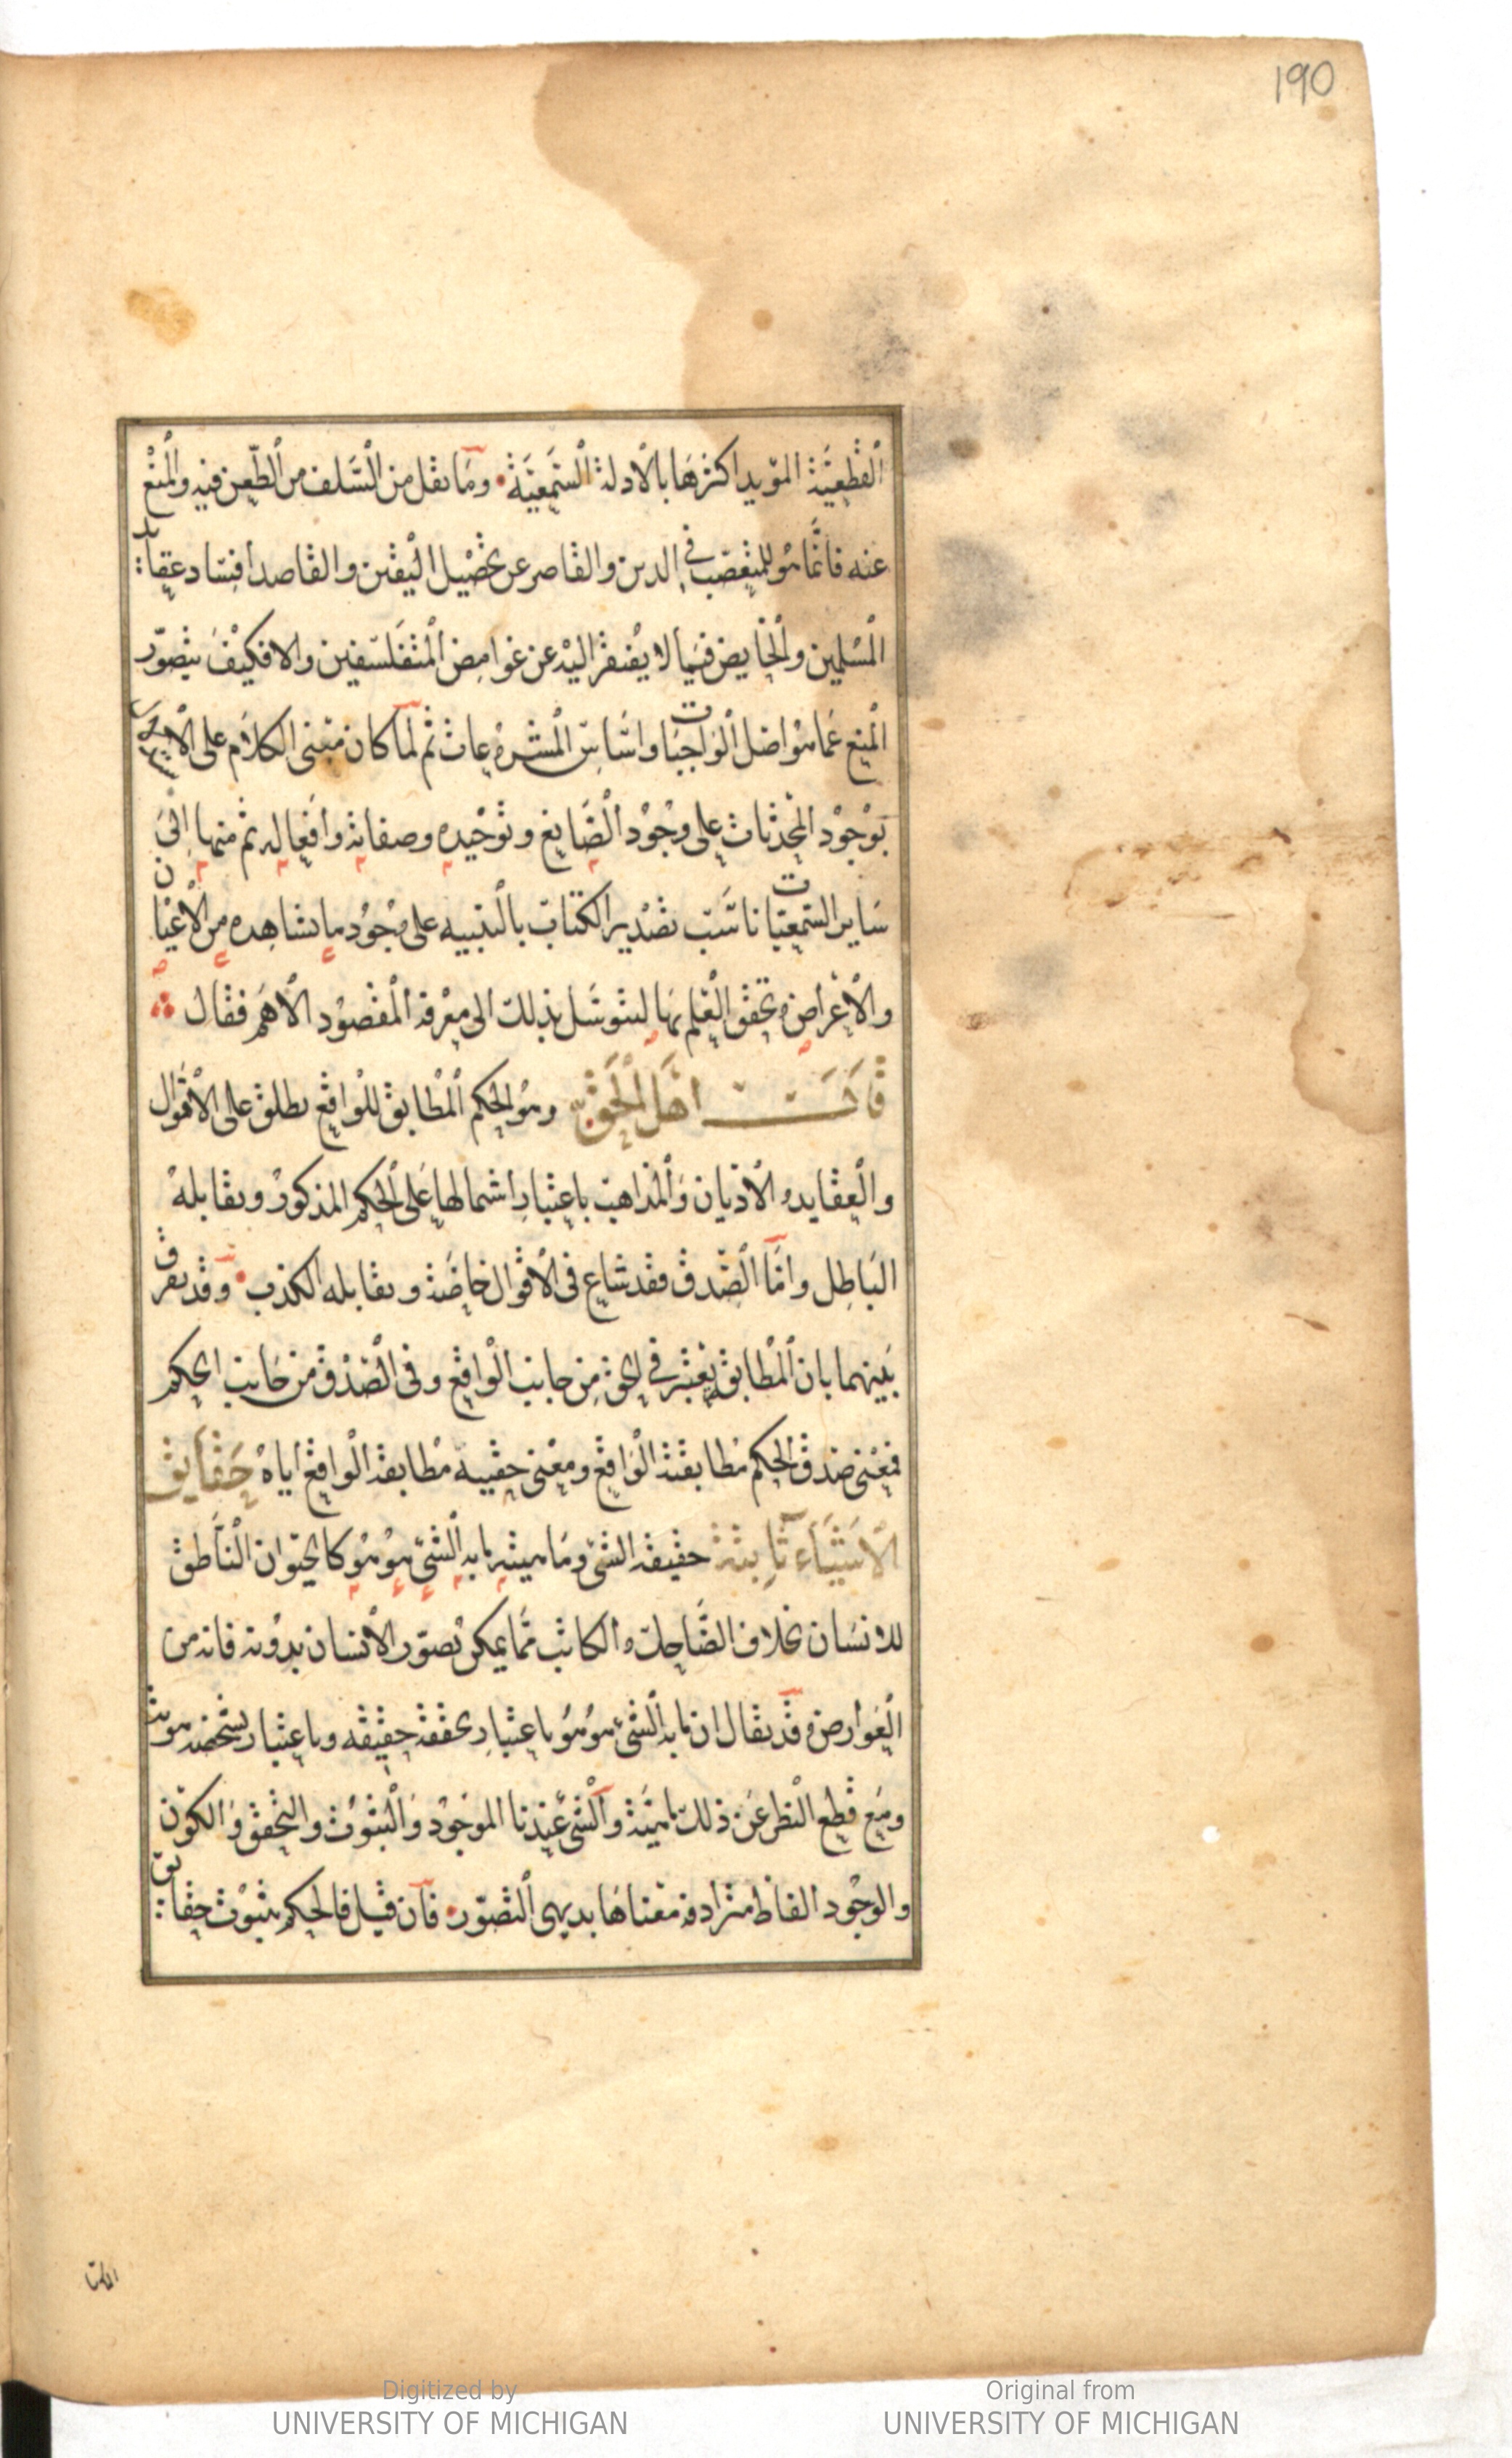 190
القطعية المؤيد اكثرها بالادلة السمعية وما نقل من السلف من الطعن فيه والمنع
عنه فانما هو للمتعصب في الدين والقاصر عن تحصيل اليقين والقاصد افساد عقايد
المسلمين والخايض فيما لا يفتقر اليه عن غوامض المتفلسفين والا فكيف يتصور
المنع عما هو اصل الواجبات واساس المشروعات ثم لما كان مبنى الكلام على
بوجود المحدثات على وجود الصانع وتوحيده وصفاته وافعاله ثم منها الى
ساير السمعيات ناسب تصدير الكتاب بالتنبيه على وجود ما نشاهده من الاعيان
والاعراض وتحقق العلم بها ليتوسل بذلك الى معرفة المقصود الاهم فقال
قال اهل الحق وهو الحكم المطابق للواقع يطلق على الاقوال
والعقايد والاديان والمذاهب باعتبار اشتمالها على الحكم المذكور ويقابله
الباطل واما الصدق فقد شاع في الاقوال خاصة ويقابله الكذب وقد يفرق
بينهما بان المطابقة يعتبر في الحق من جانب الواقع وفي الصدق من جانب الحكم
فمعنى صدق الحكم مطابقته الواقع ومعنى حقيته مطابقة الواقع اياه حقايق
الاشياء ثابتة حقيقة الشئ وماهيته ما به الشئ هو هو كالحيوان الناطق
للانسان بخلاف الضاحك والكاتب مما يمكن تصور الانسان بدونه فانه من
العوارض وقد يقال ان ما به الشئ هو هو باعتبار تحققه حقيقه وباعتبار تشخصه هوية
ومع قطع النظر عن ذلك ماهية والشئ عندنا الموجود والثبوت والتحقق والكون
والوجود الفاظ مترادفة معناها بديهي التصور فان قيل فالحكم بثبوت حقايق
Digitized by
UNIVERSITY OF MICHIGAN
Original from
UNIVERSITY OF MICHIGAN